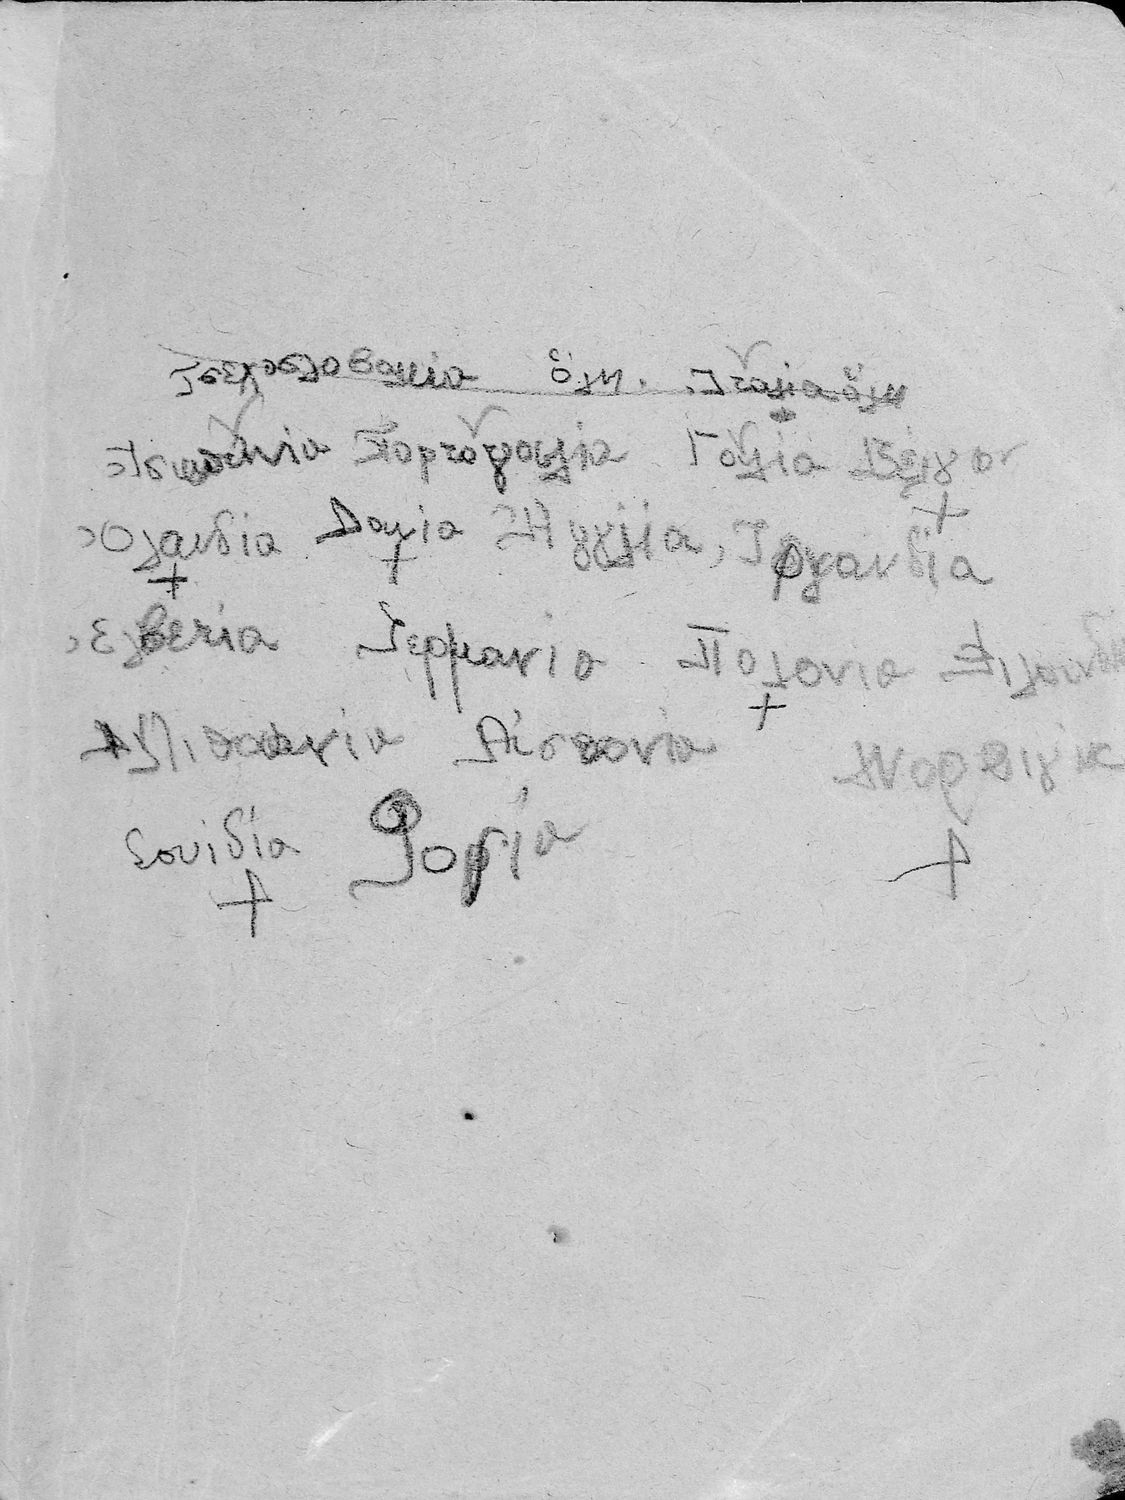 Τσεχοσλοβακία ὅλη. Ἰταλία ὅλη
Ἱσπανία Πορτογαλία Γαλία Βέλγιο
Ὁλανδία Δανία Ἀγγλία, Ἰρλανδία
Ἑλβετία Γερμανία Πολονία
Λιθουανία Αἰσθονία Νορβιγία
Σουιδία